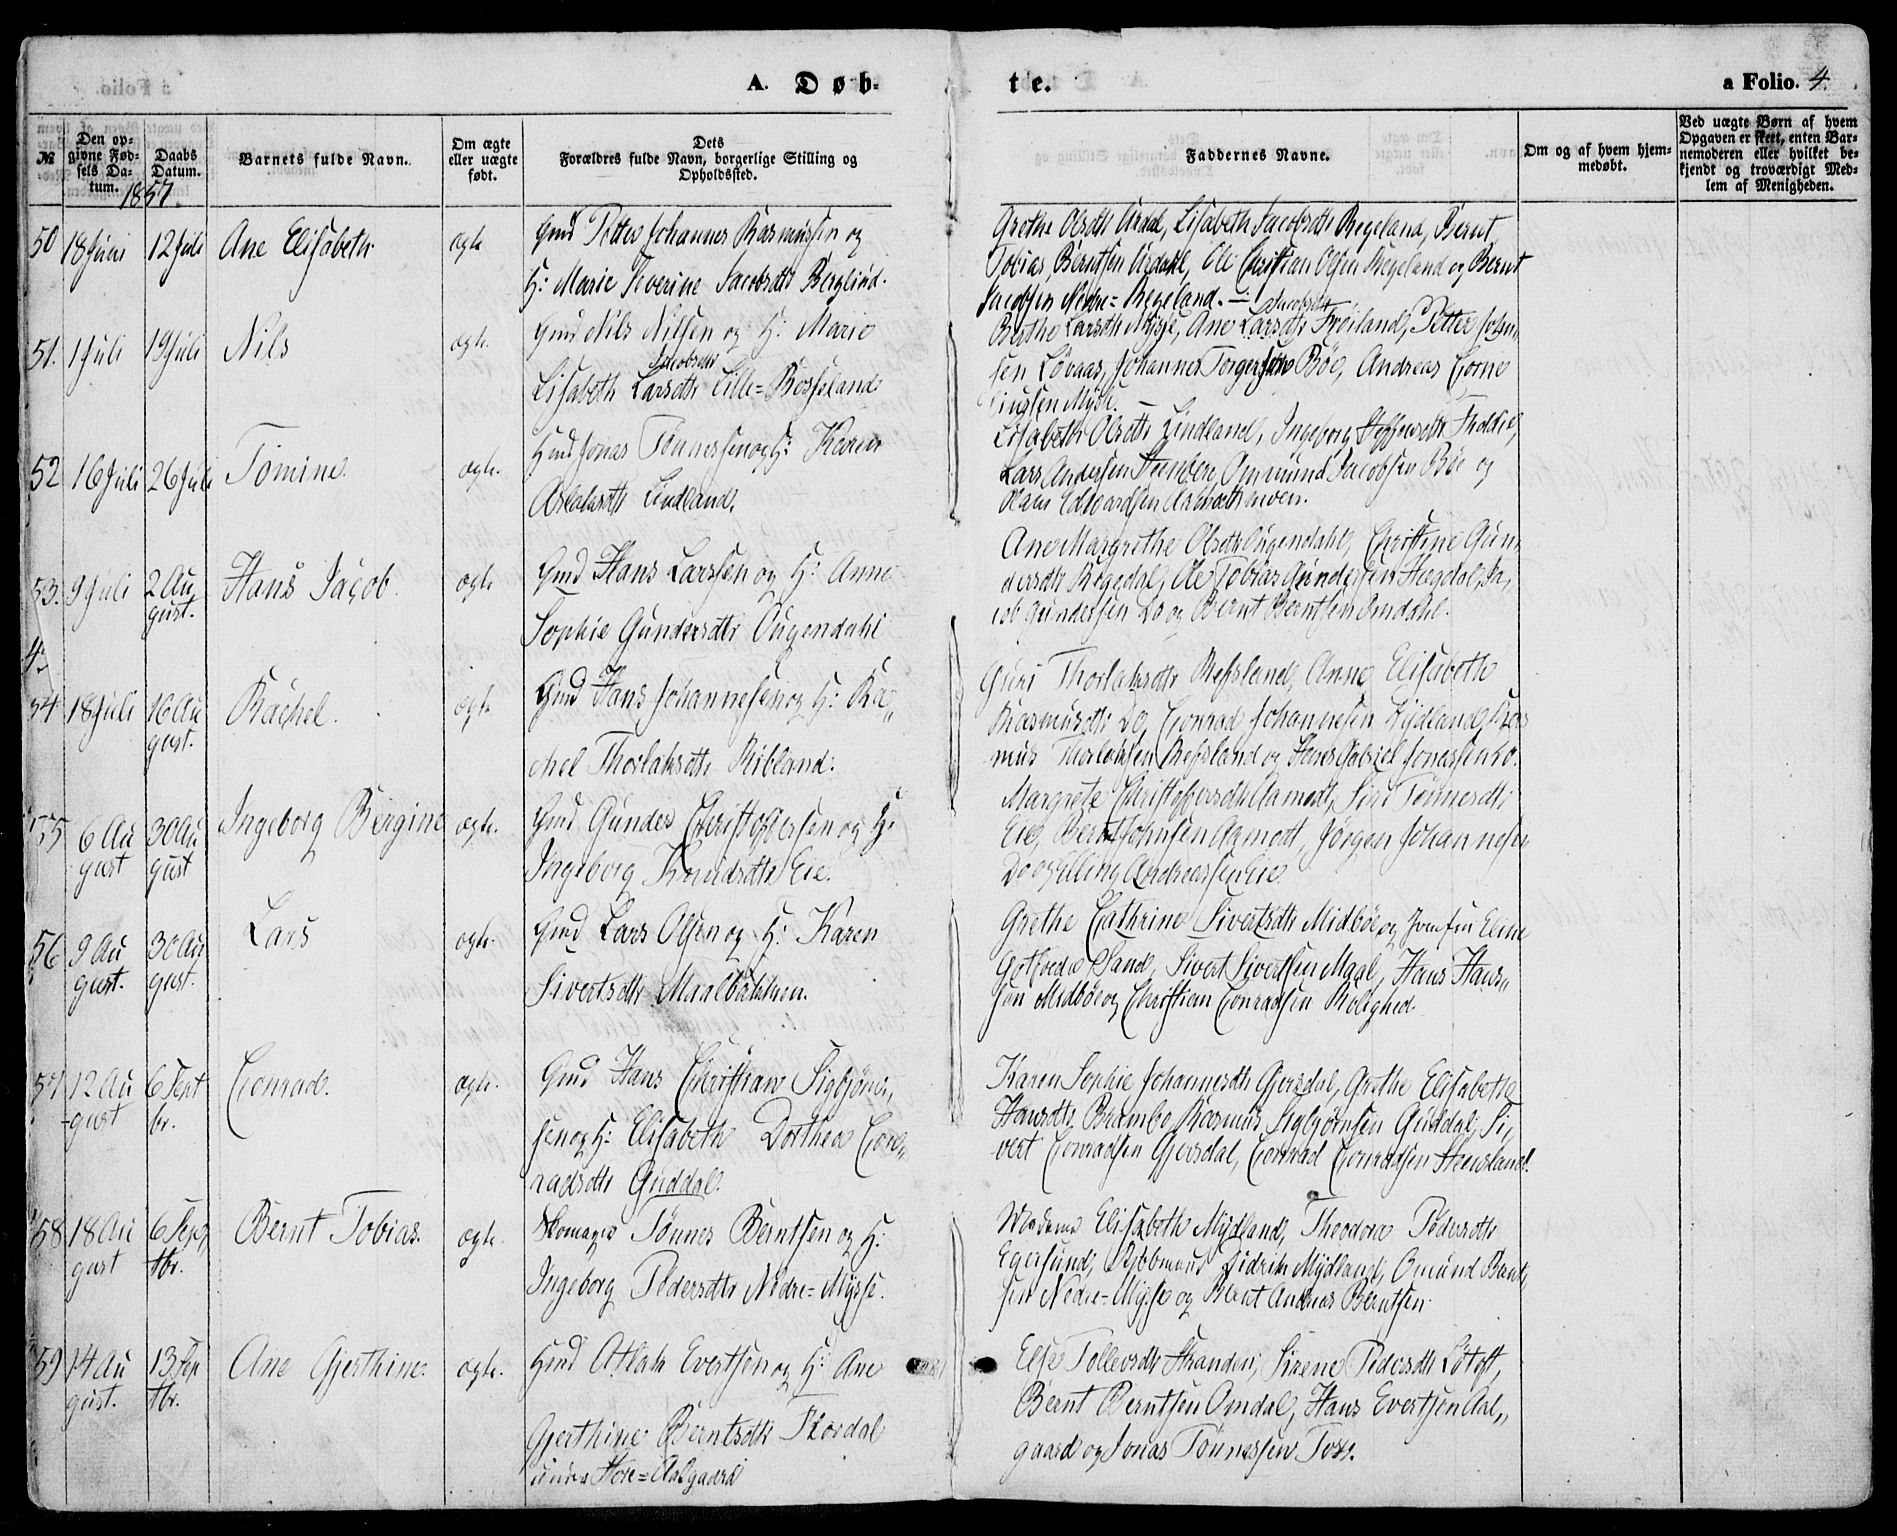 A. Døb-
te.
a Folio. 4.
№
Den op-
givne Fød-
sels Da-
tum.
Daabs
Datum.
1857.
Barnets fulde Navn.
Om ægte
eller uægte
født.
Dets
Forældres fulde Navn, borgerlige Stilling og
Opholdssted.
Faddernes Navne.
Om og af hvem hjem-
medøbt.
Ved uægte Børn af hvem
Opgaven er skeet, enten Bar-
nemoderen eller hvilket be-
kjendt og troværdigt Med-
lem af Menigheden.
50 18 Juni 12 Juli Ane Elisabeth ægte
Gmd Petter Johannes Rasmussen og
H: Marie Severine Jacobsdtr Berglund.
Grethe Olsdtr Årdal, Lisabeth Jacobsdtr Regeland, Bernt
Tobias Berntsen Årdahl, Ole Christian Olsen Regeland og Bernt
Jacobsen Nedre=Regeland.
51. 1 Juli 19 Juli Nils ægte.
Gmd Nils Nilsen og H: Marie
Jacobsdtr
Lisabeth Larsdtr Lille=Rosseland
Jacobsdtr
Berthe Larsdtr Mysse, Ane Larsdtr Frøiland, Petter
sen Løvaas, Johannes Torgersen Bøe, Andreas Corne
liussen Mysse.
52 16 Juli 26 Juli Tomine. ægte.
Gmd Jonas Tønnessen og H: Karen
Aslaksdtr Lindland.
Lisabeth Olsdtr Lindland, Ingeborg
Lars Andersen Omund Jacobsen Bøe og
Edvardsen
53. 9 Juli 2 Au
gust. Hans Jacob. ægte
Gmd Hans Larssen og H: Anne
Sophie Gundersdtr Ougendahl
Ane Margrethe Olsdtr Ougendahl, Christine Gun
dersdtr Regedal, Ole Tobias Gundersen Hegdal, Ja,
cob Gundersen Do og Bernt Berntsen Omdahl.
54 18 Juli 16 Au
gust. Rachel. ægte
Gmd Hans Johannesen og H: Ra„
chel Thorlaksdtr Ribland.
Guri Thorlaksdtr Refsland, Anne Elisabeth
Rasmusdtr Do, Conrad Johannesen Rydland, Ras
mus Thorlaksen Refsland og Hans Gabriel Jonassen Do.
55 6 Au
gust 30 Au
gust Ingeborg Bergine ægte.
Gmd Gunder Christoffersen og H:
Ingeborg Knudsdtr Eie.
Margrete Christoffersdtr Aamodt, Siri Tønnesdtr
Eie, Bernt Johnsen Aamodt, Jørgen Johannesen
Do og Elling Andreassen Eie.
56 9 Au
gust. 30 Au
gust. Lars ægte.
Gmd Lars Olsen og H: Karen
Sivertsdtr Maalbakken.
Grethe Cathrine Sivertsdtr Midbøe og Josefine Eline
Gotfreda Sand, Sivert Sivertsen Maal, Hans Hans„
sen Midbøe og Christian Conradsen Rolighed.
57 12 Au
gust 6 Sept
br. Conrad. ægte.
Gmd Hans Christian Sigbjørn,
sen og H: Elisabeth Dorthea Con„
radsdtr Guddal.
Karen Sophie Johannesdtr Gjersdal, Grethe Elisabeth
Hansdtr Barnbo, Rasmus Sigbjørnsen Guddal, Si„
vert Conradsen Gjersdal, Conrad Conradsen Steensland.
58 18 Au
gust 6 Sep
tbr. Bernt Tobias. ægte.
Skomager Tønnes Berntsen og H:
Ingeborg Pedersdtr Nedre=Mysse.
Madame Elisabeth Mydland, Theodore Pedersdtr
Egersund, Didrik Mydland, Omund Bent
sen Nedre=Mysse og Bernt Andreas Berntsen.
59 14 Au
gust. 13 Sep
tbr. Ane Gjerthine. ægte.
Gmd Atlak Evertsen og H: Ane
Gjerthine Berntsdtr Skordal
under Store=Aalgaard
Else Tollevsdtr Stranden, Sirene Pedersdtr Løtoft,
Bernt Berntsen Omdal, Hans Evertsen Aal„
gaard og Jonas Tønnessen Toss.